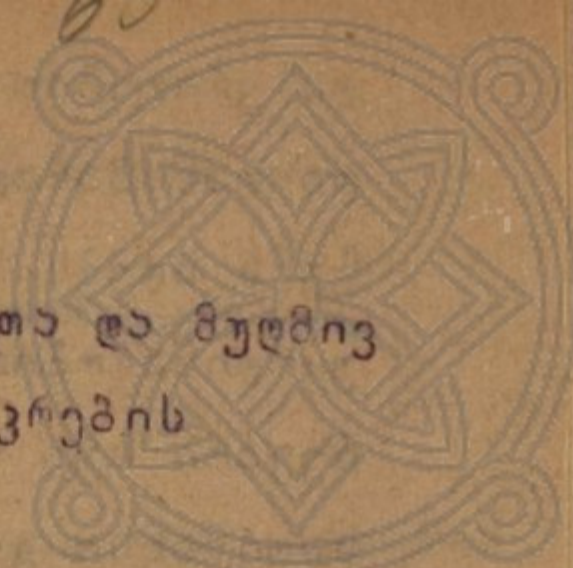 თა და მუდმივ
ვრების